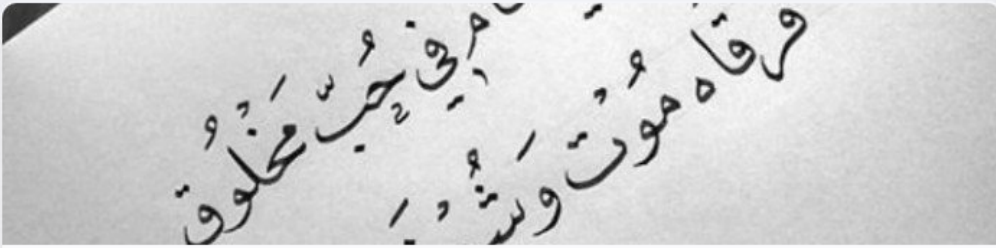 في حُبّ مَخْلُوق
فرقاه مُوْت وَ